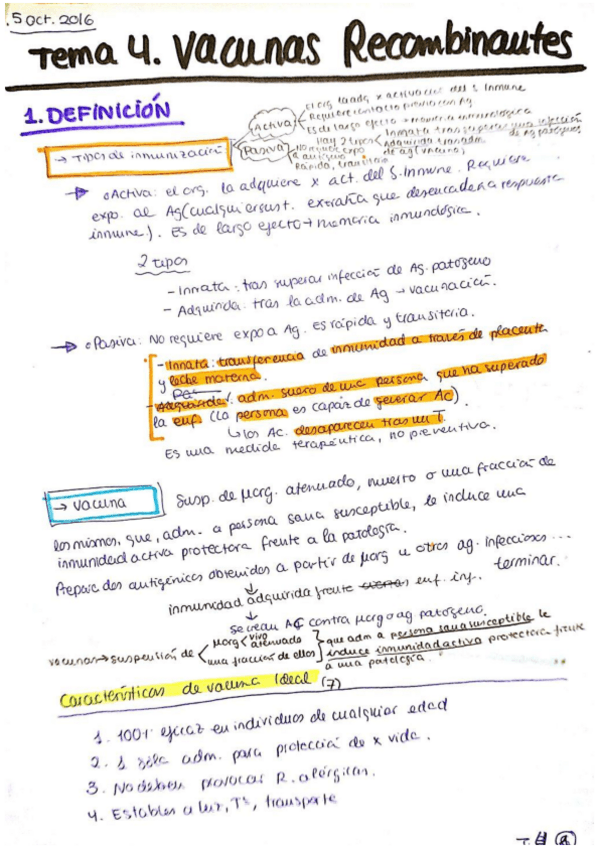 5 Oct. 2016
Tema 4. Vacunas Recombinantes
1. DEFINICIÓN
→ Tipos de inmunización
Activa
El org la adq x activación del S Inmune
Requiere contacto previo con Ag
Es de largo efecto → memoria inmunológica
Pasiva
No requiere expo
a antígeno
Rápida, transitoria
Hay 2 tipos
Innata tras superar una infección
de Ag patógenos
Adquirida tras adm
de ag (vacuna)
• Activa: el org. la adquiere x act. del S. Inmune. Requiere
expo. al Ag (cualquier sust. extraña que desencadena respuesta
inmune). Es de largo efecto → memoria inmunológica.
2 tipos
- Innata: tras superar infección de Ag. patógeno
- Adquirida: tras la adm. de Ag → vacunación.
• Pasiva: No requiere expo a Ag. es rápida y transitoria.
- Innata: transferencia de inmunidad a través de placenta
y leche materna.
- Adquirida: adm. suero de una persona que ha superado
la enf. (La persona es capaz de generar Ac)
↳ los Ac. desaparecen tras un T.
Es una medida terapéutica, no preventiva.
→ vacuna
Susp. de μorg. atenuado, muerto o una fracción de
los mismos, que, adm. a persona sana susceptible, le induce una
inmunidad activa protectora frente a la patología.
Preparados antigénicos obtenidos a partir de μorg u otros ag. infecciosos ...
inmunidad adquirida frente enf. inf. terminar.
se crean Ac contra μorg o ag patógeno.
vacunas → suspensión de
μorg vivo
atenuado
una fracción de ellos
que adm a persona sana susceptible le
induce inmunidad activa protectora frente
a una patología.
Características de vacuna Ideal (7)
1. 100% eficaz en individuos de cualquier edad
2. 1 sola adm. para protección de x vida.
3. No deben provocar R. alérgicas.
4. Estables a luz, Tª, transporte